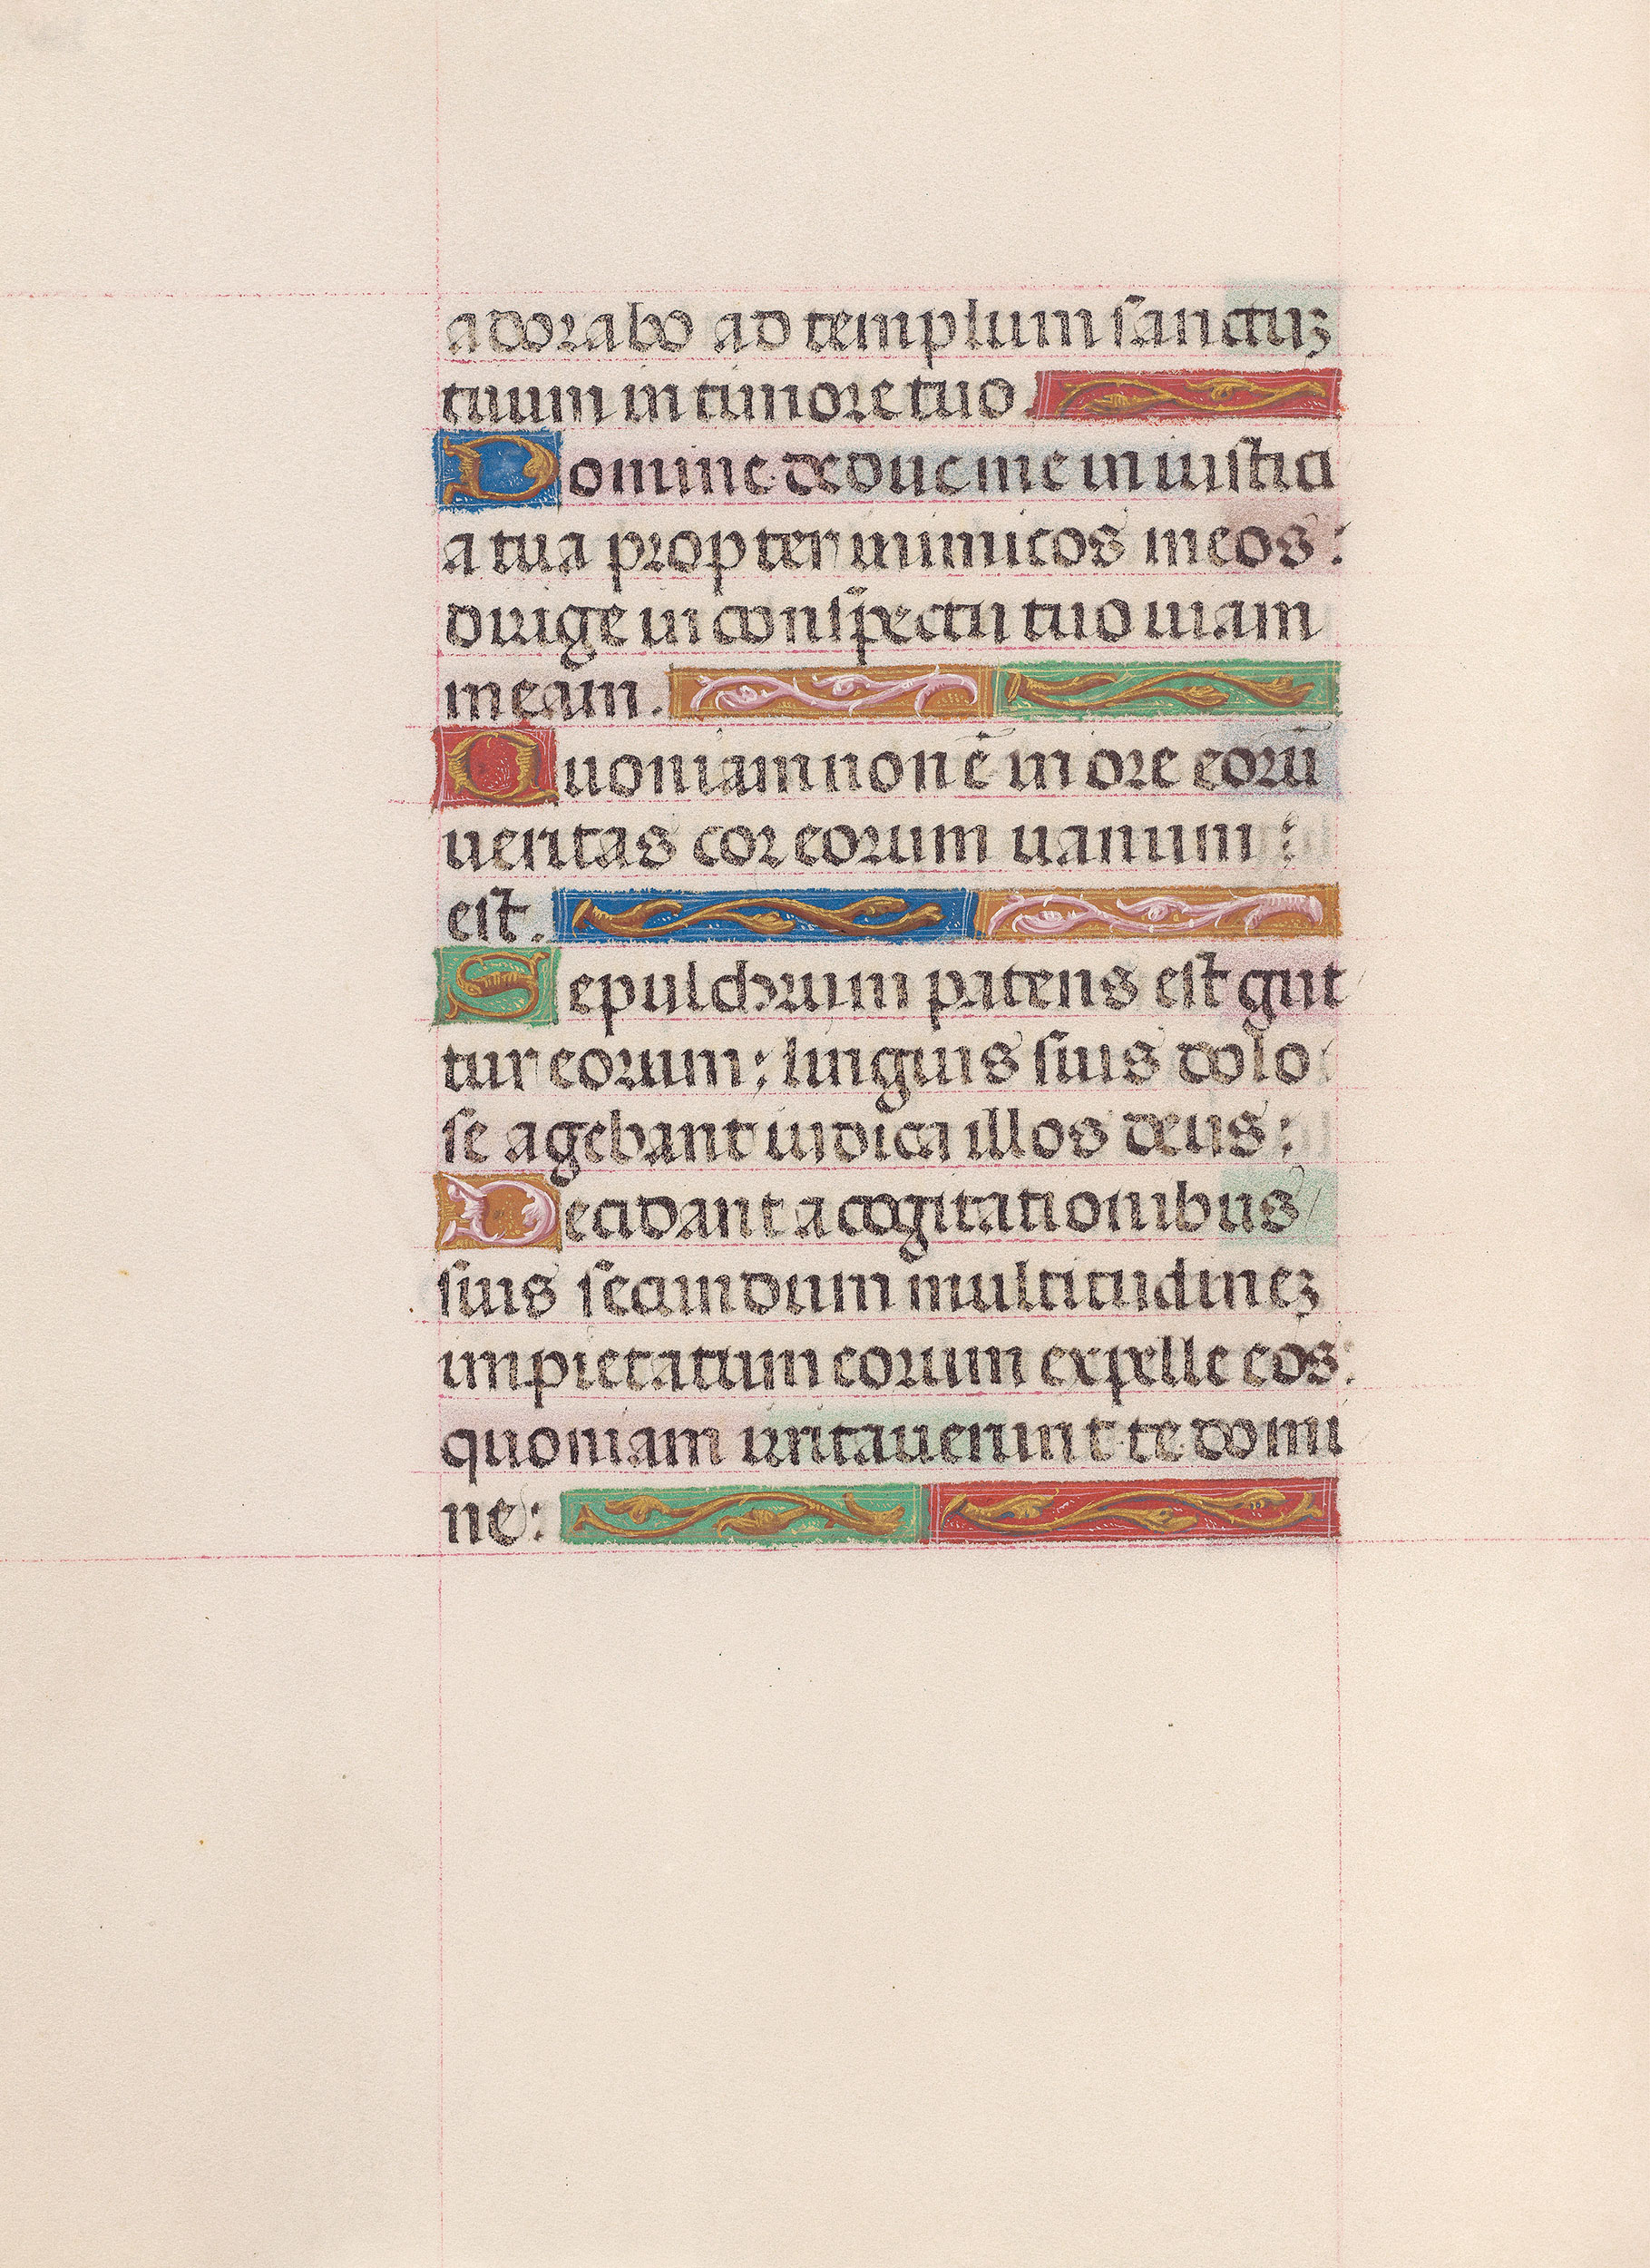 adorabo ad templum sanctuꝫ
tuum in timore tuo.
Domine deduc me in iusticı
a tua propter inimicos meos:
dirige in conspectu tuo uiam
meam.
Quoniam non ē in ore eorū
ueritas cor eorum uanum :
est.
Sepulchrum patens est gut
tur eorum: linguis suis dolo
se agebant iudica illos deus:
Decidant a cogitationibus
suis secundum multitudineꝫ
impietatum eorum expelle eos:
quoniam irritauerunt te domi
ne: